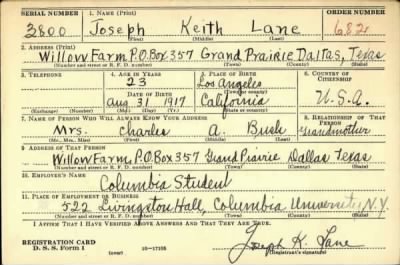 SERIAL NUMBER 1. NAME (Print) ORDER NUMBER
2800 Joseph Keith Lane 682
(First) (Middle) (Last)
2. ADDRESS (Print)
Willow Farm, P.O. Box 357 Grand Prairie Dallas, Texas
(Number and street or R. F. D. number) (Town) (County) (State)
3. TELEPHONE 4. AGE IN YEARS 5. PLACE OF BIRTH 6. COUNTRY OF CITIZENSHIP
23 Los Angeles
(Town or county)
DATE OF BIRTH
Aug 31 1917 California U.S.A.
(Exchange) (Number) (Mo.) (Day) (Yr.) (State or country)
7. NAME OF PERSON WHO WILL ALWAYS KNOW YOUR ADDRESS 8. RELATIONSHIP OF THAT PERSON
Mrs. Charles A. Bush Grandmother
(Mr., Mrs., Miss) (First) (Middle) (Last)
9. ADDRESS OF THAT PERSON
Willow Farm, P.O. Box 357 Grand Prairie Dallas Texas
(Number and street or R. F. D. number) (Town) (County) (State)
10. EMPLOYER'S NAME
Columbia Student
11. PLACE OF EMPLOYMENT OR BUSINESS
522 Livingston Hall, Columbia University N.Y.
(Number and street or R. F. D. number) (Town) (County) (State)
I AFFIRM THAT I HAVE VERIFIED ABOVE ANSWERS AND THAT THEY ARE TRUE.
REGISTRATION CARD
D. S. S. Form 1 16—17105 Joseph K. Lane
(Registrant's signature)